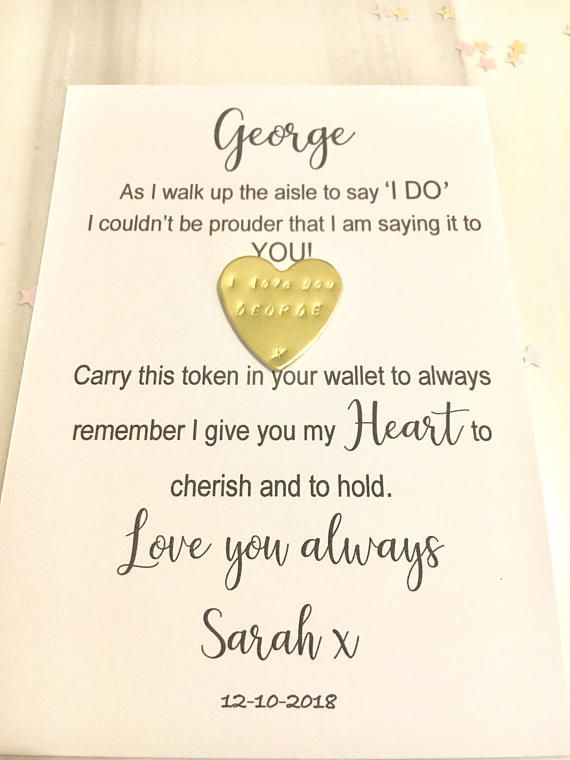 George
As I walk up the aisle to say ‘I DO’
I couldn’t be prouder that I am saying it to
YOU!
I love you
GEORGE
x
Carry this token in your wallet to always
remember I give you my Heart to
cherish and to hold.
Love you always
Sarah x
12-10-2018